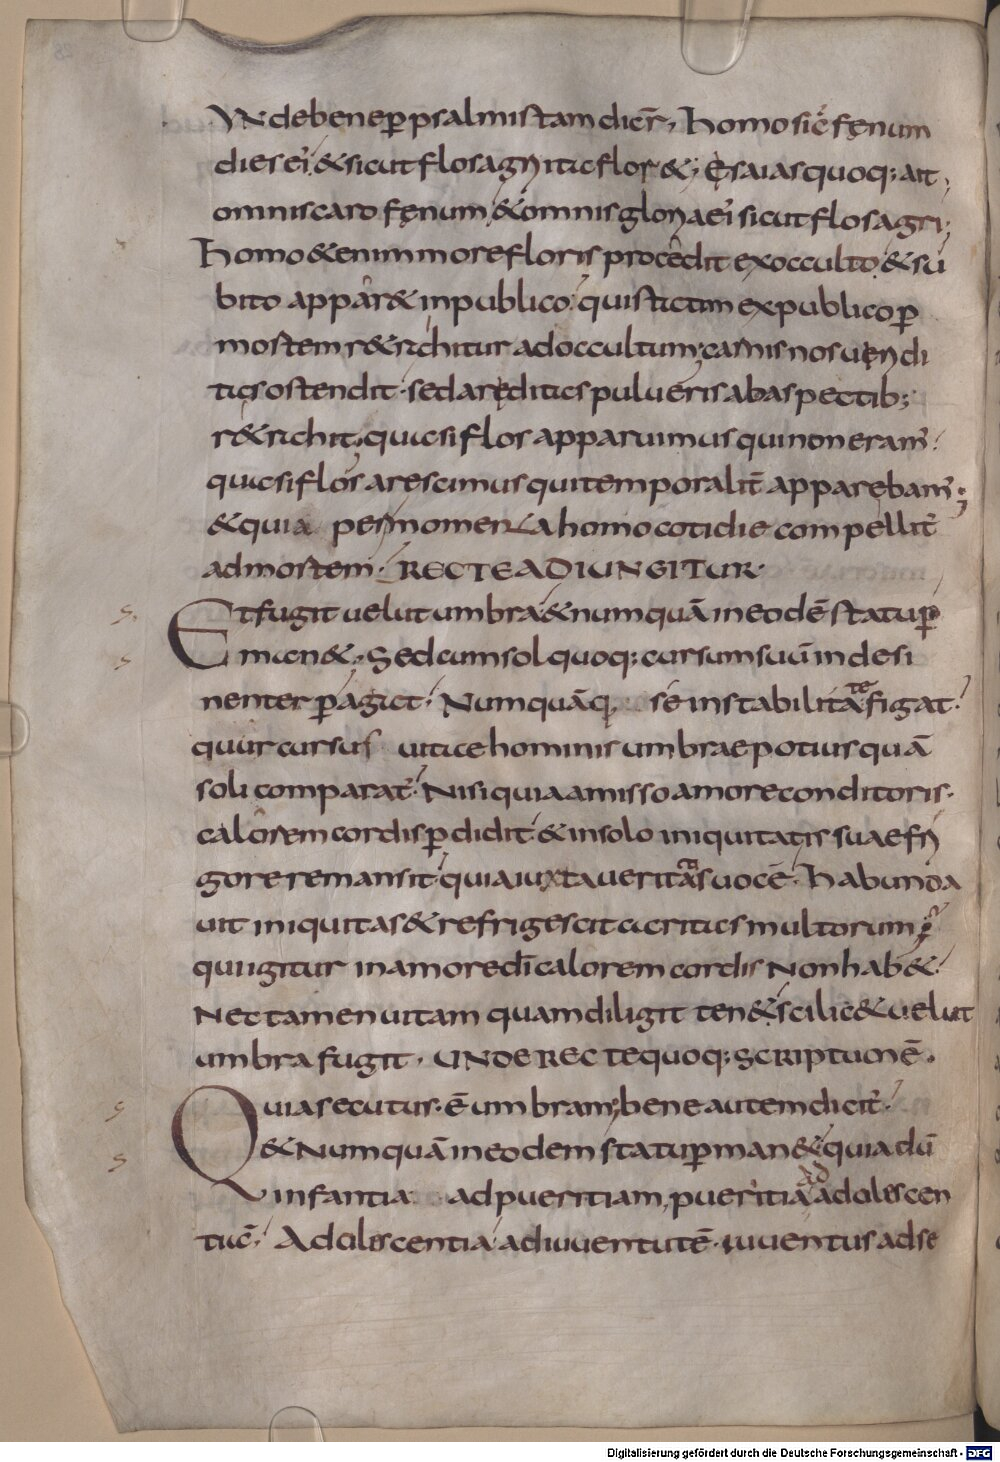 Unde bene per psalmistam dicr̄, homo sic̄ fęnum
dies ei' & sicut flos agri itac flor&; Esaias quoq; ait;
omnis caro fęnum, & omnis gloria ei' sicut flos agri;
Homo &enim more floris procedit ex occulto & su
bito appar& in publico. qui statim ex publico p̄
mortem r&rahitur ad occultum; carnis nos uiridi
tas ostendit. sed ariditas pulueris ab aspectib;
r&rahit, quasi flos apparuimus qui non eram'.
quasi flos arescimus qui temporalit̄ apparebam';
& quia per momenta homo cotidie compellit'
ad mortem. RECTE ADIUNGITUR.
Et fugit uelut umbra & numquā in eodē statu p̄
man&. Sed cum sol quoq; cursum suū indesi
nenter p̄agat. Numquāq, se in stabilitate figat.
quur cursus uitae hominis umbrae potius quā
soli comparat'. Nisi quia amisso amore conditoris.
calorem cordis p̄didit & in solo iniquitatis suae fri
gore remansit quia iuxta ueritatis uocē. Habunda
uit iniquitas & refrigescit caritas multorum;
qui igitur in amore dī calorem cordis non hab&.
Nec tamen uitam quam diligit ten& scilic& uelut
umbra fugit. UNDE RECTE quoq; scriptum ē.
Quia secutus. ē umbram; bene autem dicit'.
& Numquā in eodem statu p̄man& quia dū
infantia ad pueritiam, pueritia ad adoliscen
tiā. Adoliscentia ad iuuentutē. iuuentus ad se
Digitalisierung gefördert durch die Deutsche Forschungsgemeinschaft - DFG